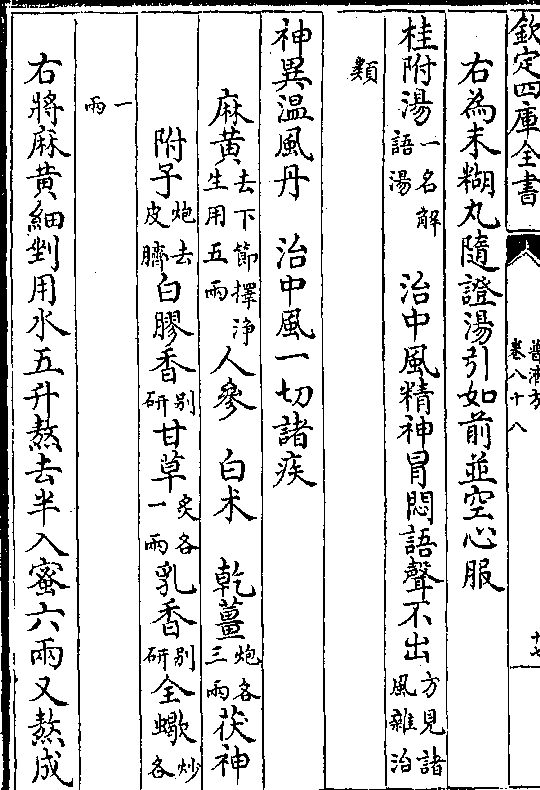 欽定四庫全書
普濟方
卷八十八
十七
右為末糊丸隨證湯引如前並空心服
桂附湯一名解語湯 治中風精神冒悶語聲不出方見諸風雜治
類
神異温風丹 治中風一切諸疾
麻黄去下節擇浄生用五兩 人參 白术 乾薑炮各三兩 茯神
附子炮去皮臍 白膠香别研 甘草炙各一兩 乳香别研 全蠍炒各
一兩
右將麻黄細剉用水五升熬去半入蜜六兩又熬成